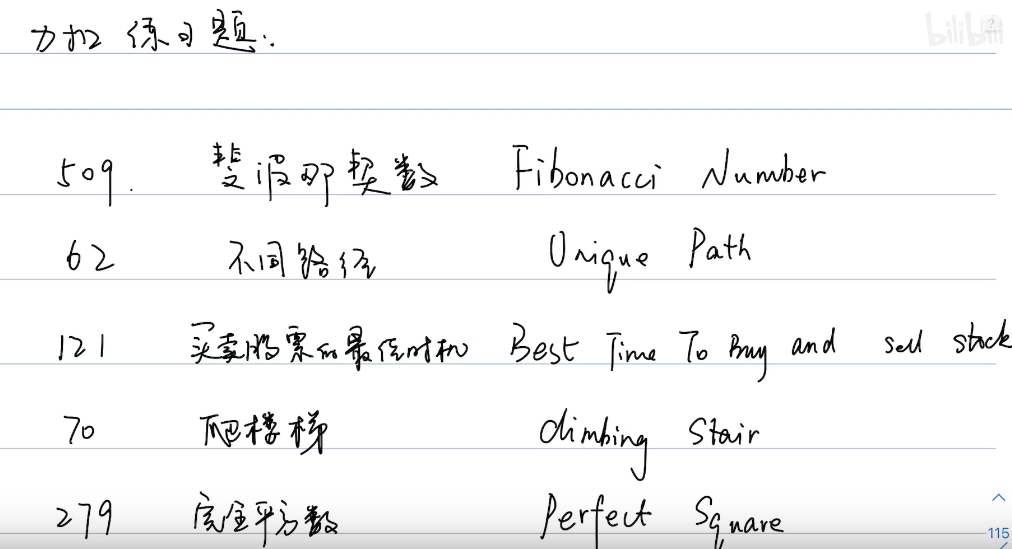 力扣 练习题.
bilibili
509. 斐波那契数 Fibonacci Number
62 不同路径 Unique Path
121 买卖股票的最佳时机 Best Time To Buy and sell stock
70 爬楼梯 climbing Stair
279 完全平方数 Perfect Square
115